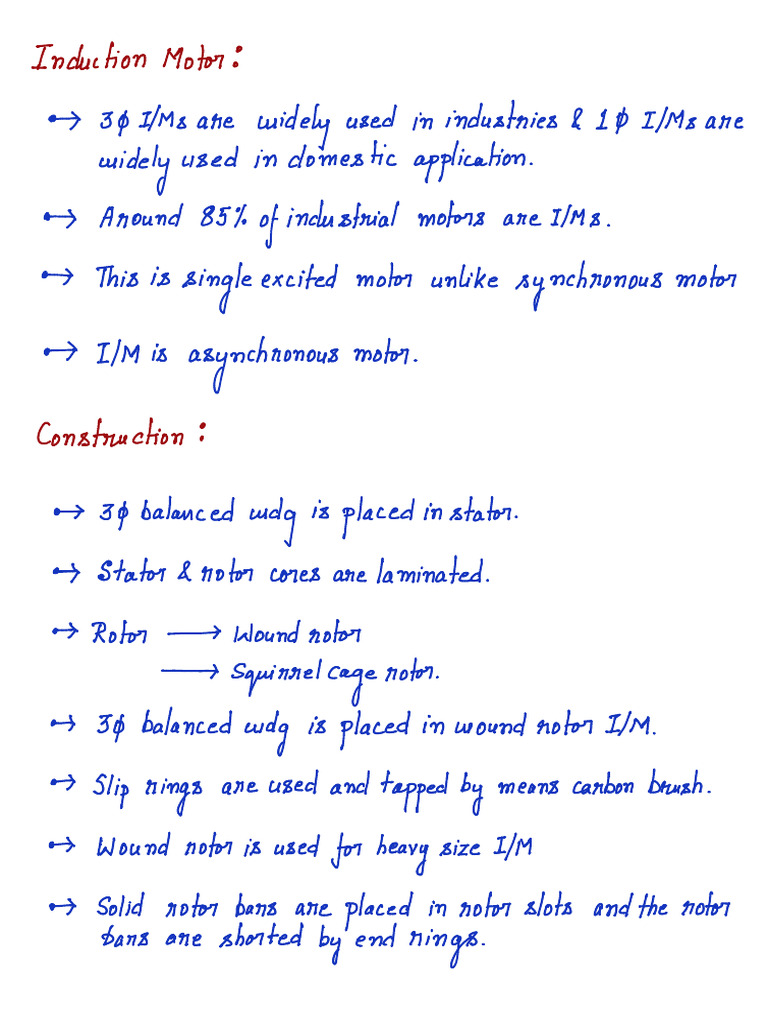 Induction Motor:
→ 3ϕ I/Ms are widely used in industries & 1ϕ I/Ms are
widely used in domestic application.
→ Around 85% of industrial motors are I/Ms.
→ This is single excited motor unlike synchronous motor
→ I/M is asynchronous motor.
Construction:
→ 3ϕ balanced wdg is placed in stator.
→ Stator & rotor cores are laminated.
→ Rotor → Wound rotor
→ Squirrel cage rotor.
→ 3ϕ balanced wdg is placed in wound rotor I/M.
→ Slip rings are used and tapped by means carbon brush.
→ Wound rotor is used for heavy size I/M
→ Solid rotor bars are placed in rotor slots and the rotor
bars are shorted by end rings.